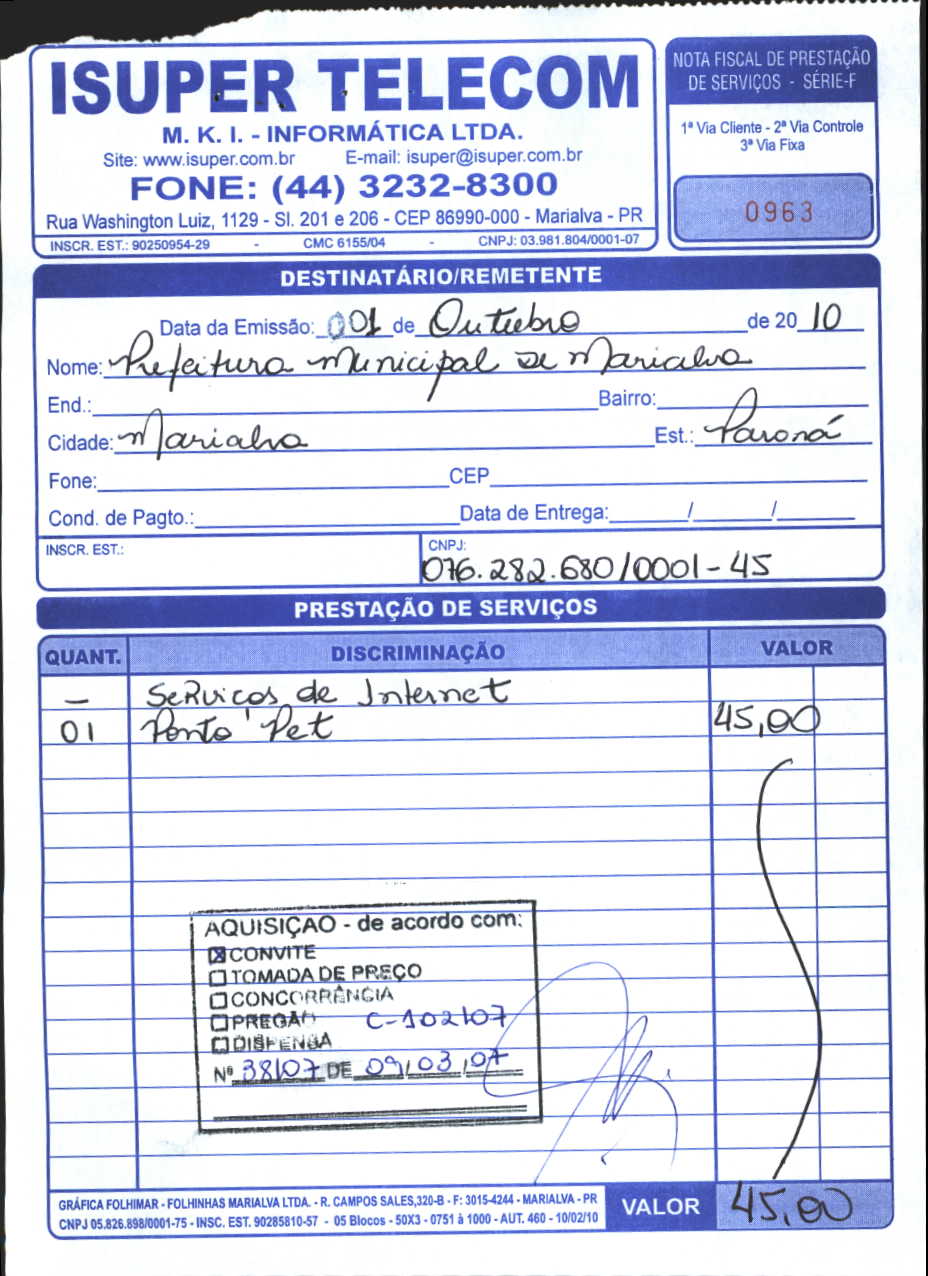 ISUPER TELECOM
M. K. I. - INFORMÁTICA LTDA.
Site: www.isuper.com.br E-mail: isuper@isuper.com.br
FONE: (44) 3232-8300
Rua Washington Luiz, 1129 - Sl. 201 e 206 - CEP 86990-000 - Marialva - PR
INSCR. EST.: 90250954-29 - CMC 6155/04 - CNPJ: 03.981.804/0001-07
NOTA FISCAL DE PRESTAÇÃO
DE SERVIÇOS - SÉRIE-F
1ª Via Cliente - 2ª Via Controle
3ª Via Fixa
0963
DESTINATÁRIO/REMETENTE
Data da Emissão: 001 de Outubro de 20 10
Nome: Prefeitura Municipal de Marialva
End.: Bairro:
Cidade: Marialva Est.: Paraná
Fone: CEP
Cond. de Pagto.: Data de Entrega: / /
INSCR. EST.: CNPJ:
076.282.680/0001-45
PRESTAÇÃO DE SERVIÇOS
QUANT. DISCRIMINAÇÃO VALOR
— Serviços de Internet
01 Ponto Pet 45,00
AQUISIÇÃO - de acordo com:
CONVITE
TOMADA DE PREÇO
CONCORRÊNCIA
PREGÃO C-102/07
DISPENSA
Nº 38/07 DE 09/03/07
GRÁFICA FOLHIMAR - FOLHINHAS MARIALVA LTDA. - R. CAMPOS SALES,320-B - F: 3015-4244 - MARIALVA - PR
CNPJ 05.826.898/0001-75 - INSC. EST. 90285810-57 - 05 Blocos - 50X3 - 0751 à 1000 - AUT. 460 - 10/02/10
VALOR 45,00